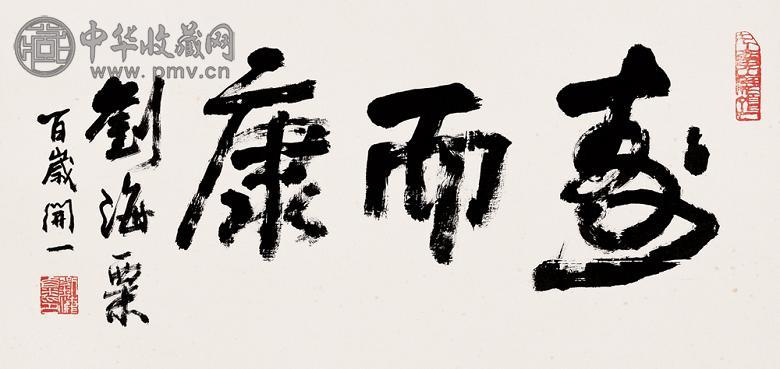 寿而康
劉海粟
百歲開一
中华收藏网
www.pmv.cn